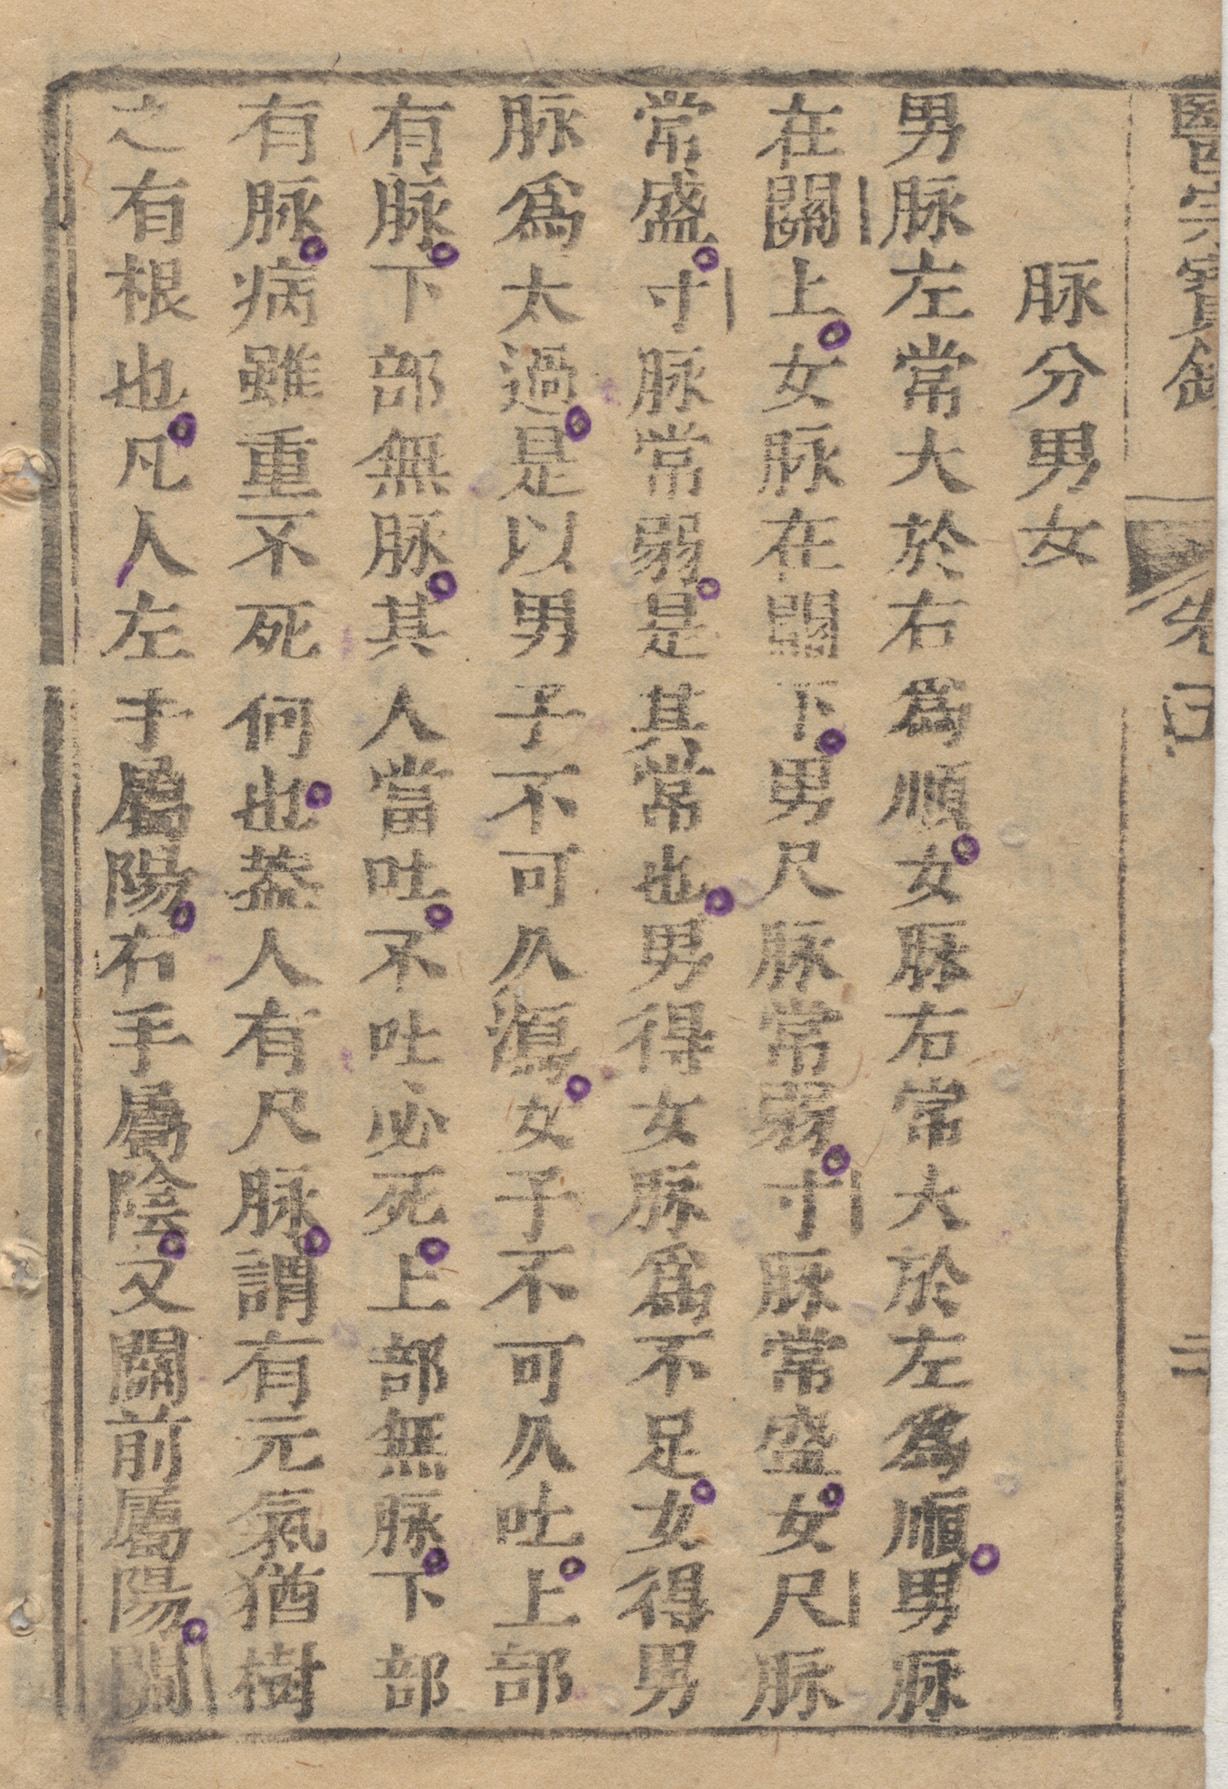 醫宗寶
二
脉分男女
男脉左常大於右爲順女脉右常大於左爲順男脉
在關上女脉在關下男尺脉常弱寸脉常盛女尺脉
常盛寸脉常弱是其常也男得女脉爲不足女得男
脉爲太過是以男子不可久瀉女子不可久吐上部
有脉下部無脉其人當吐不吐必死上部無脉下部
有脉病雖重不死何也葢人有尺脉謂有元氣猶樹
之有根也凡人左手屬陽右手屬陰又關前屬陽關